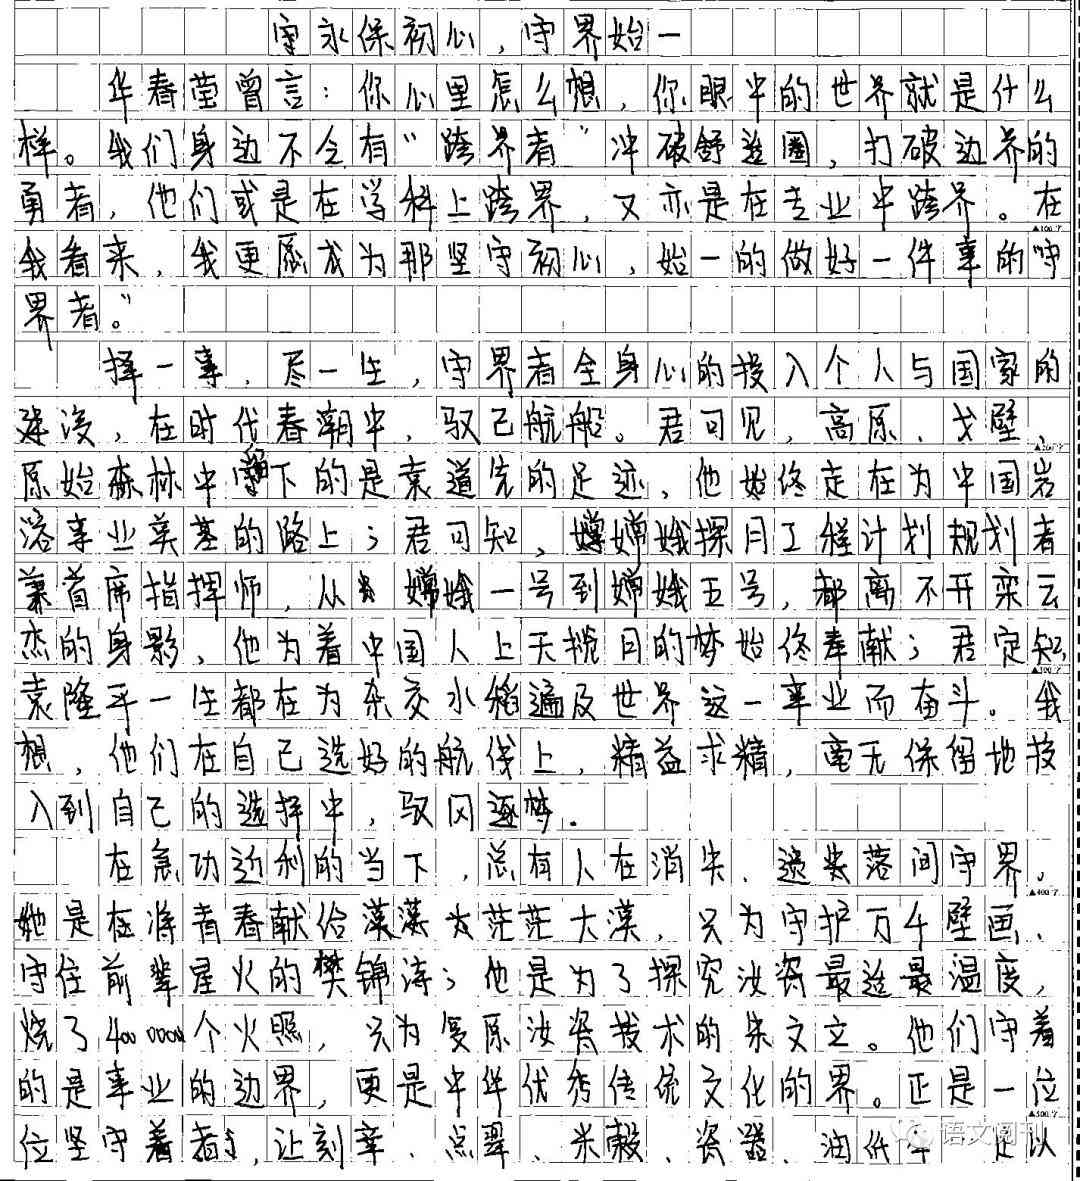 守永保初心，守界始一
华春莹曾言：你心里怎么想，你眼中的世界就是什么
样。我们身边不乏有“跨界者”冲破舒适圈，打破边界的
勇者，他们或是在学科上跨界，又亦是在专业中跨界。在
我看来，我更愿成为那坚守初心，始一的做好一件事的“守
界者。”
择一事，尽一生，守界者全身心的投入个人与国家的
建设，在时代春潮中，驭己航船。君可见，高原、戈壁、
原始森林中留下的是袁道先的足迹，他始终走在为中国岩
溶事业奠基的路上；君可知，嫦娥探月工程计划规划者
兼首席指挥师，从嫦娥一号到嫦娥五号，都离不开栾云
杰的身影，他为着中国人上天揽月的梦始终奉献；君定知，
袁隆平一生都在为杂交水稻遍及世界这一事业而奋斗。我
想，他们在自己选好的航线上，精益求精，毫无保留地投
入到自己的选择中，驭风逐梦。
在急功近利的当下，总有人在消失、遗失落间守界。
她是在将青春献给茫茫大漠，只为守护万千壁画、
守住前辈星火的樊锦涛；他是为了探究汝瓷最适最温度，
烧了400000个火照，只为复原汝瓷技术的朱文立。他们守着
的是事业的边界，更是中华优秀传统文化的界。正是一位
位坚守着者，让刻章、点翠、米毂、瓷器、油纸伞 足以
▲100字
▲200字
▲300字
▲400字
▲500字
语文阅刊